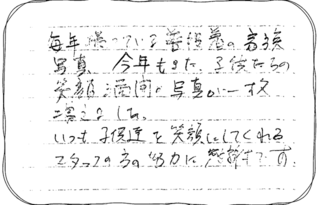 毎年撮っている普段着の家族
写真 今年もまた、子供たちの
笑顔満開の写真が一枚
増えました。
いつも子供達を笑顔にしてくれる
スタッフの方の努力に感謝です。